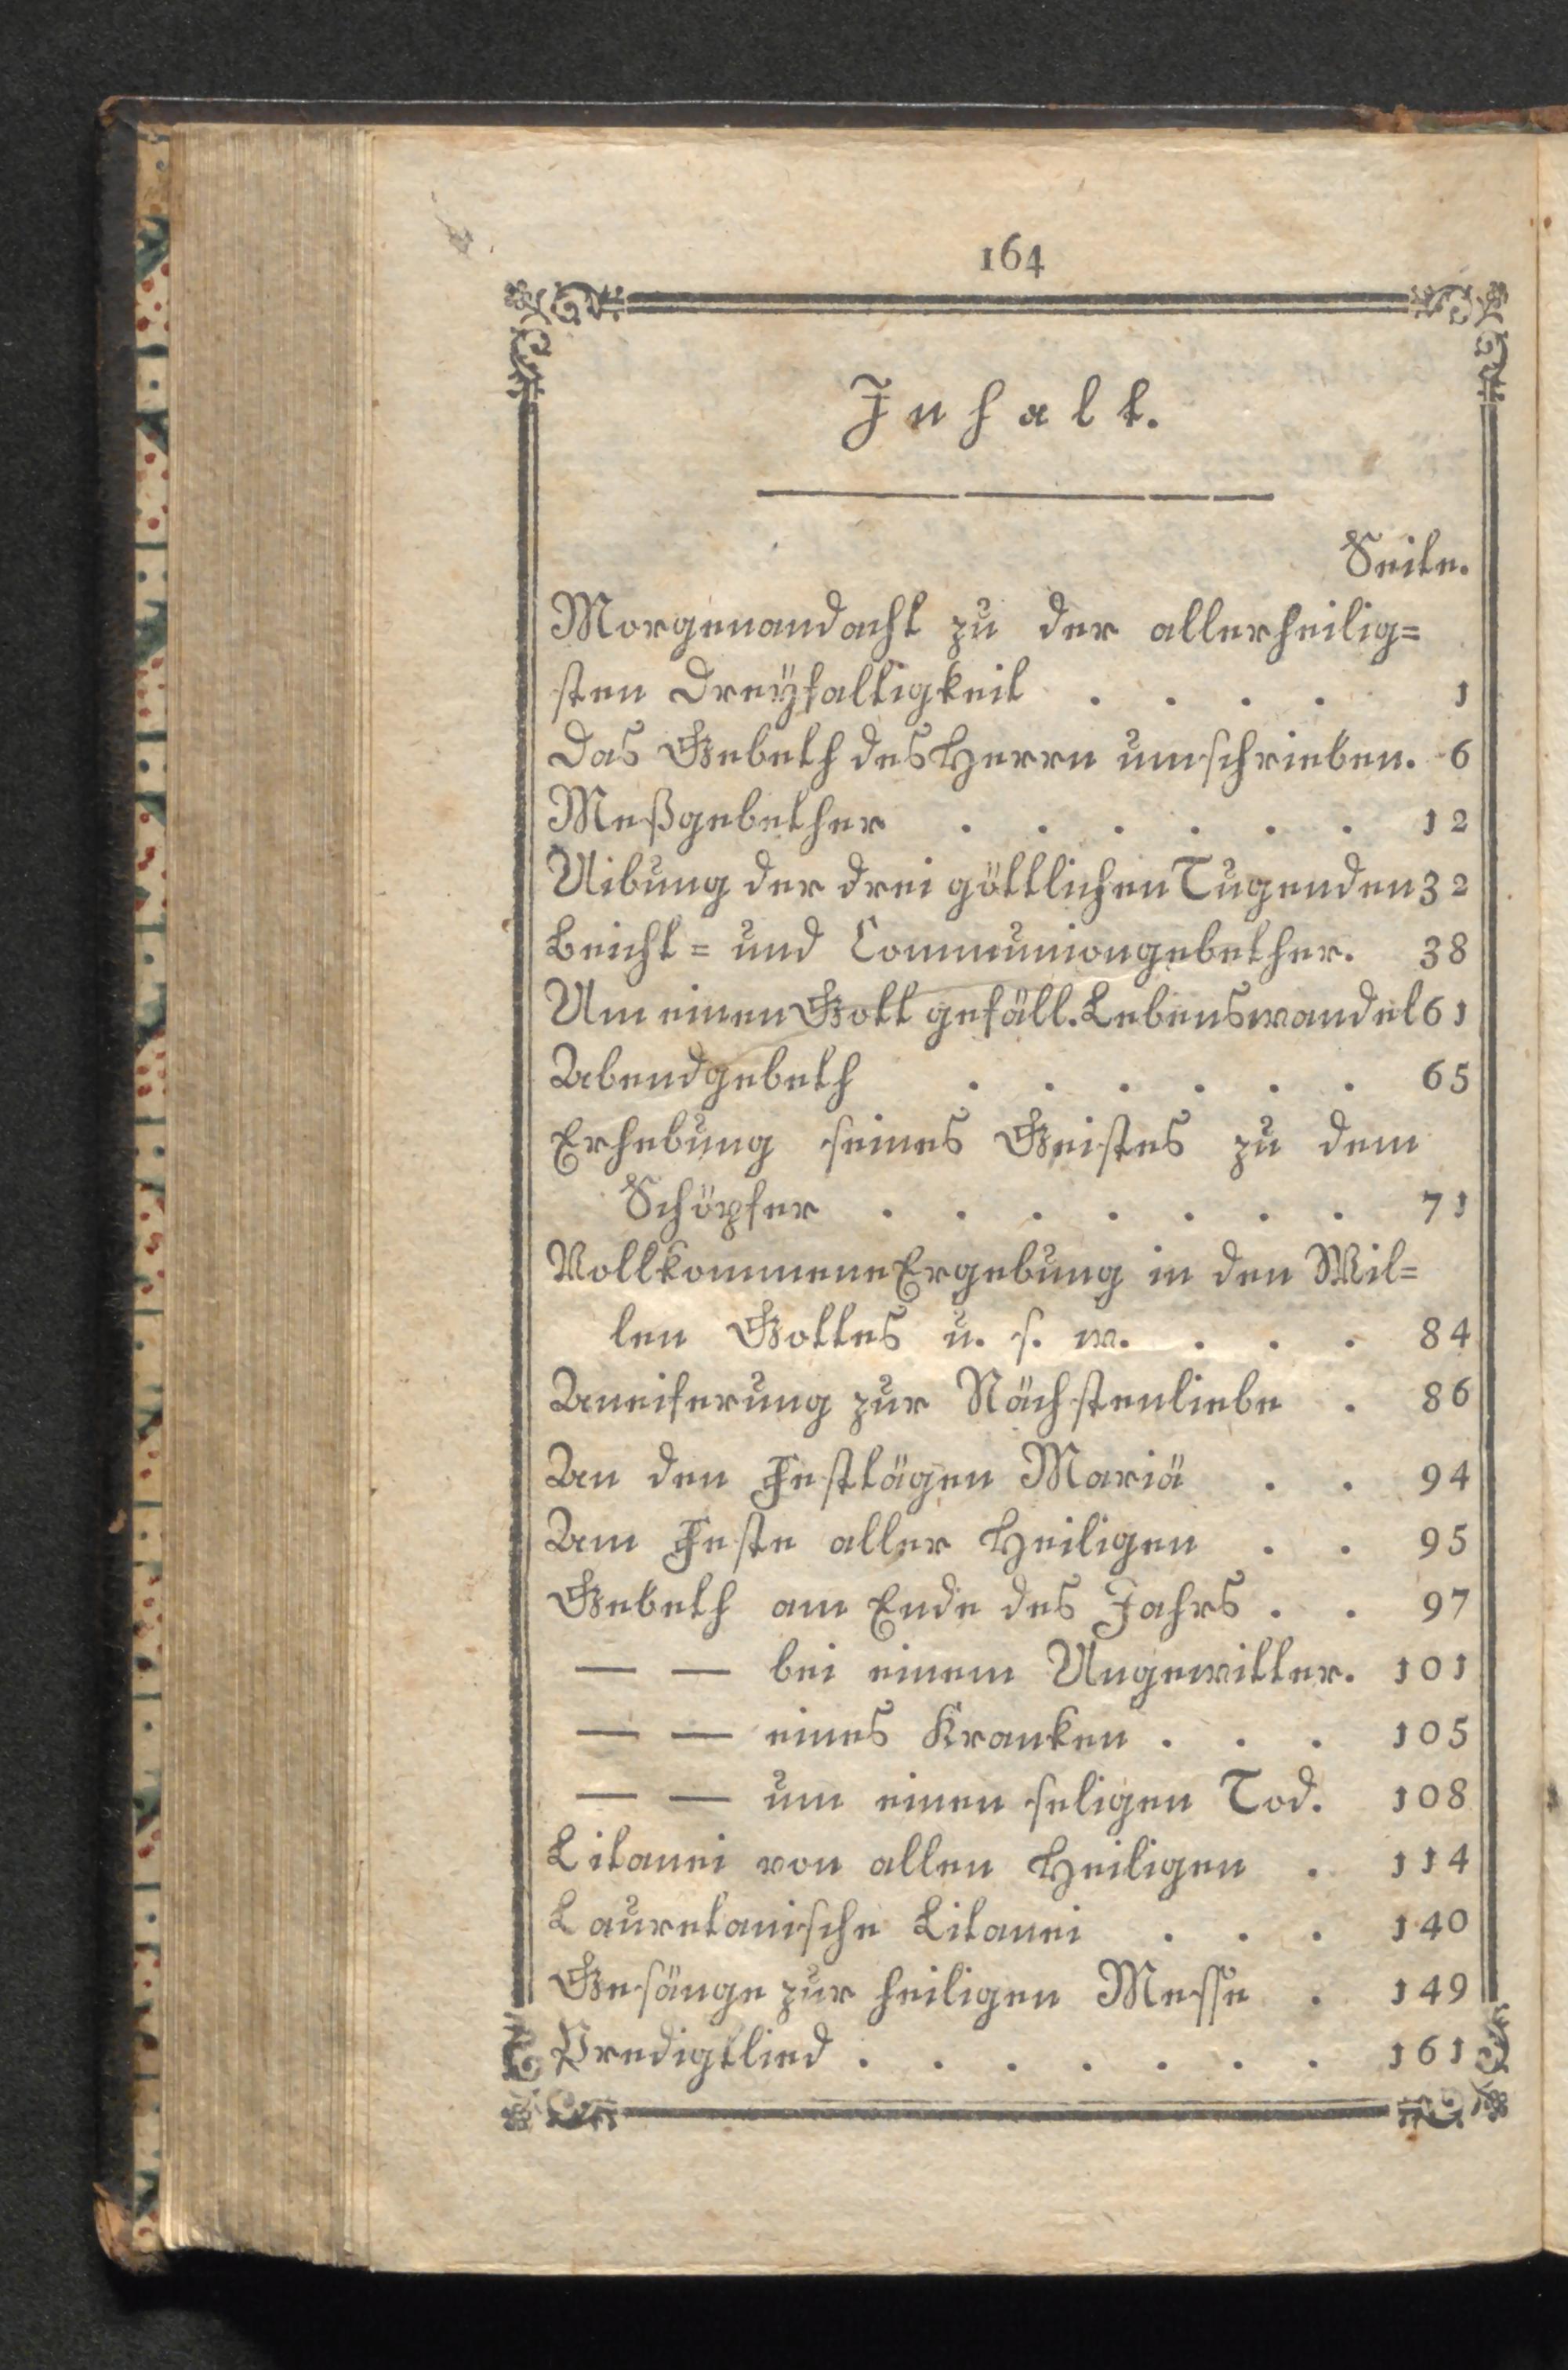 164
Inhalt.
Seite.
Morgenandacht zu der allerheilig=
sten Dreyfaltigkeit . . . . 1
Das Gebeth des Herrn umschrieben. 6
Meßgebether . . . . . . 12
Uibung der drei göttlichen Tugenden 32
Beicht= und Communiongebether. 38
Um einen Gott gefäll. Lebenswandel 61
Abendgebeth . . . . . . 65
Erhebung seines Geistes zu dem
Schöpfer . . . . . . . 71
Vollkommene Ergebung in den Wil=
len Gottes u. s. w. . . . 84
Aneiferung zur Nächstenliebe . 86
An den Festtägen Mariä . . 94
Am Feste aller Heiligen . . 95
Gebeth am Ende des Jahrs . . 97
— — bei einem Ungewitter. 101
— — eines Kranken . . . 105
— — um einen seligen Tod. 108
Litanei von allen Heiligen . 114
Lauretanische Litanei . . . 140
Gesänge zur heiligen Messe . 149
Predigtlied . . . . . . . 161